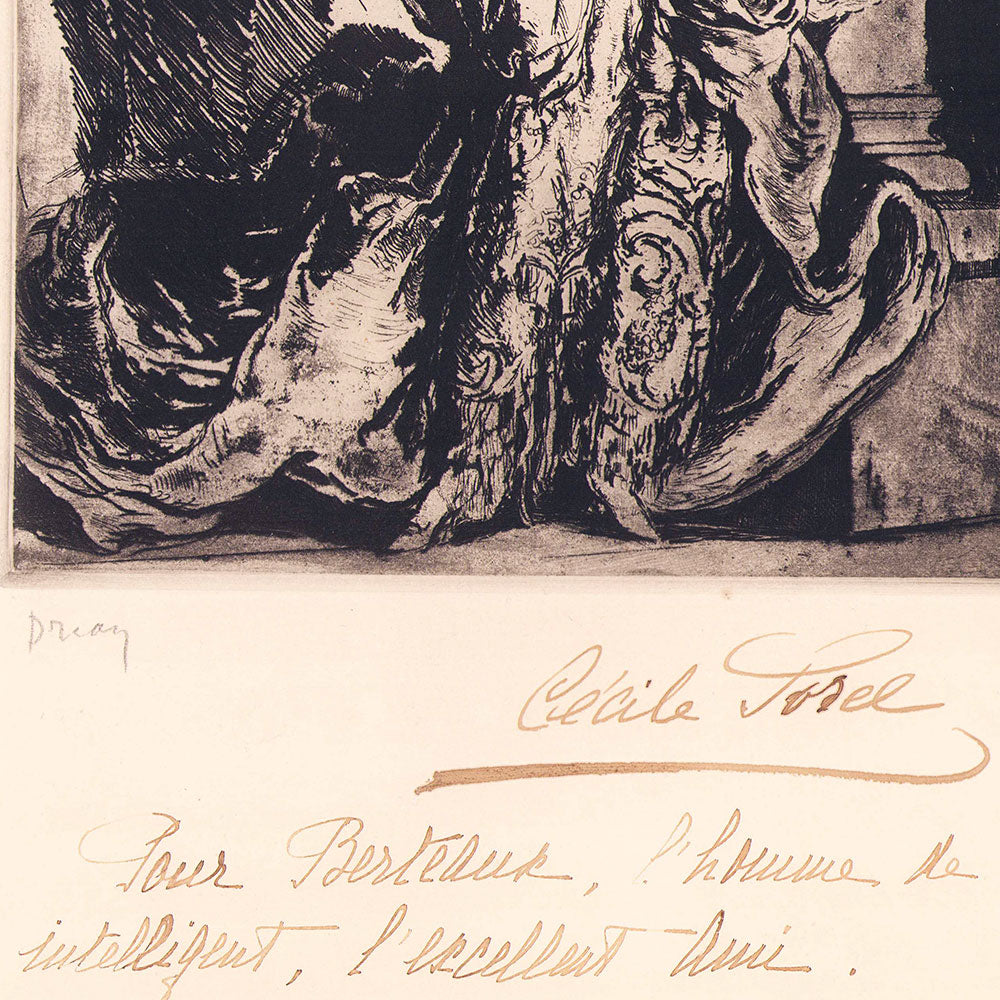 Drian
Cécile Sorel
Pour Berteaux, l'homme de
intelligent, l'excellent Ami.